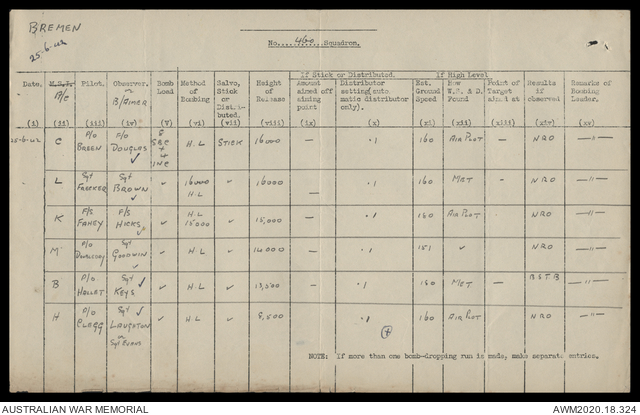 BREMEN
25-6-42
No. 460 Squadron.
If Stick or Distributed. If High Level
Date. Pilot. Observer. Bomb Load Method of Bombing Salvo, Stick or Distributed. Height of Release Amount aimed off aiming point Distributor setting (automatic distributor only). Est. Ground Speed How W.S. & D. Found Point of Target aimed at Results if observed Remarks of Bombing Leader.
A/C B/AIMER
(i) (ii) (iii) (iv) (v) (vi) (vii) (viii) (ix) (x) (xi) (xii) (xiii) (xiv) (xv)
25-6-42 C P/O BREEN P/O DOUGLAS ✓ 8 SBC + 4 INC H.L STICK 16000 — .1 160 AIR PLOT — NRO —"—
L Sgt Sgt BROWN ✓ ✓ 16000 H.L ✓ 16000 — .1 160 MET — NRO —"—
K F/S FAHEY F/S HICKS ✓ ✓ H.L 15000 ✓ 15,000 — .1 180 AIR PLOT NRO —"—
M P/O Sgt GOODWIN ✓ ✓ H.L ✓ 14000 — .1 151 ✓ NRO —"—
B P/O Sgt ✓ KEYS ✓ H.L ✓ 13,500 — .1 180 MET — B S T. B —"—
H P/O CLAGG Sgt ✓ LAUGHTON or Sgt EVANS ✓ H.L ✓ 8,500 .1 160 AIR PLOT NRO —"—
NOTE: If more than one bomb-dropping run is made, make separate entries.
AUSTRALIAN WAR MEMORIAL AWM2020.18.324